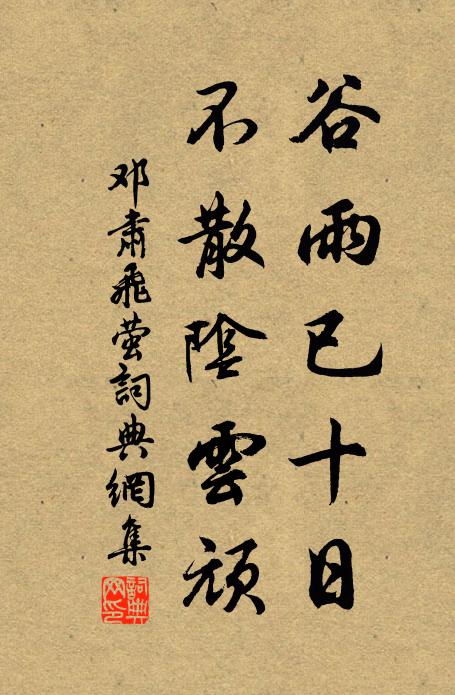 谷雨已十日
不散陰雲頑
邓肅飛螢詞典網集
詞典网印